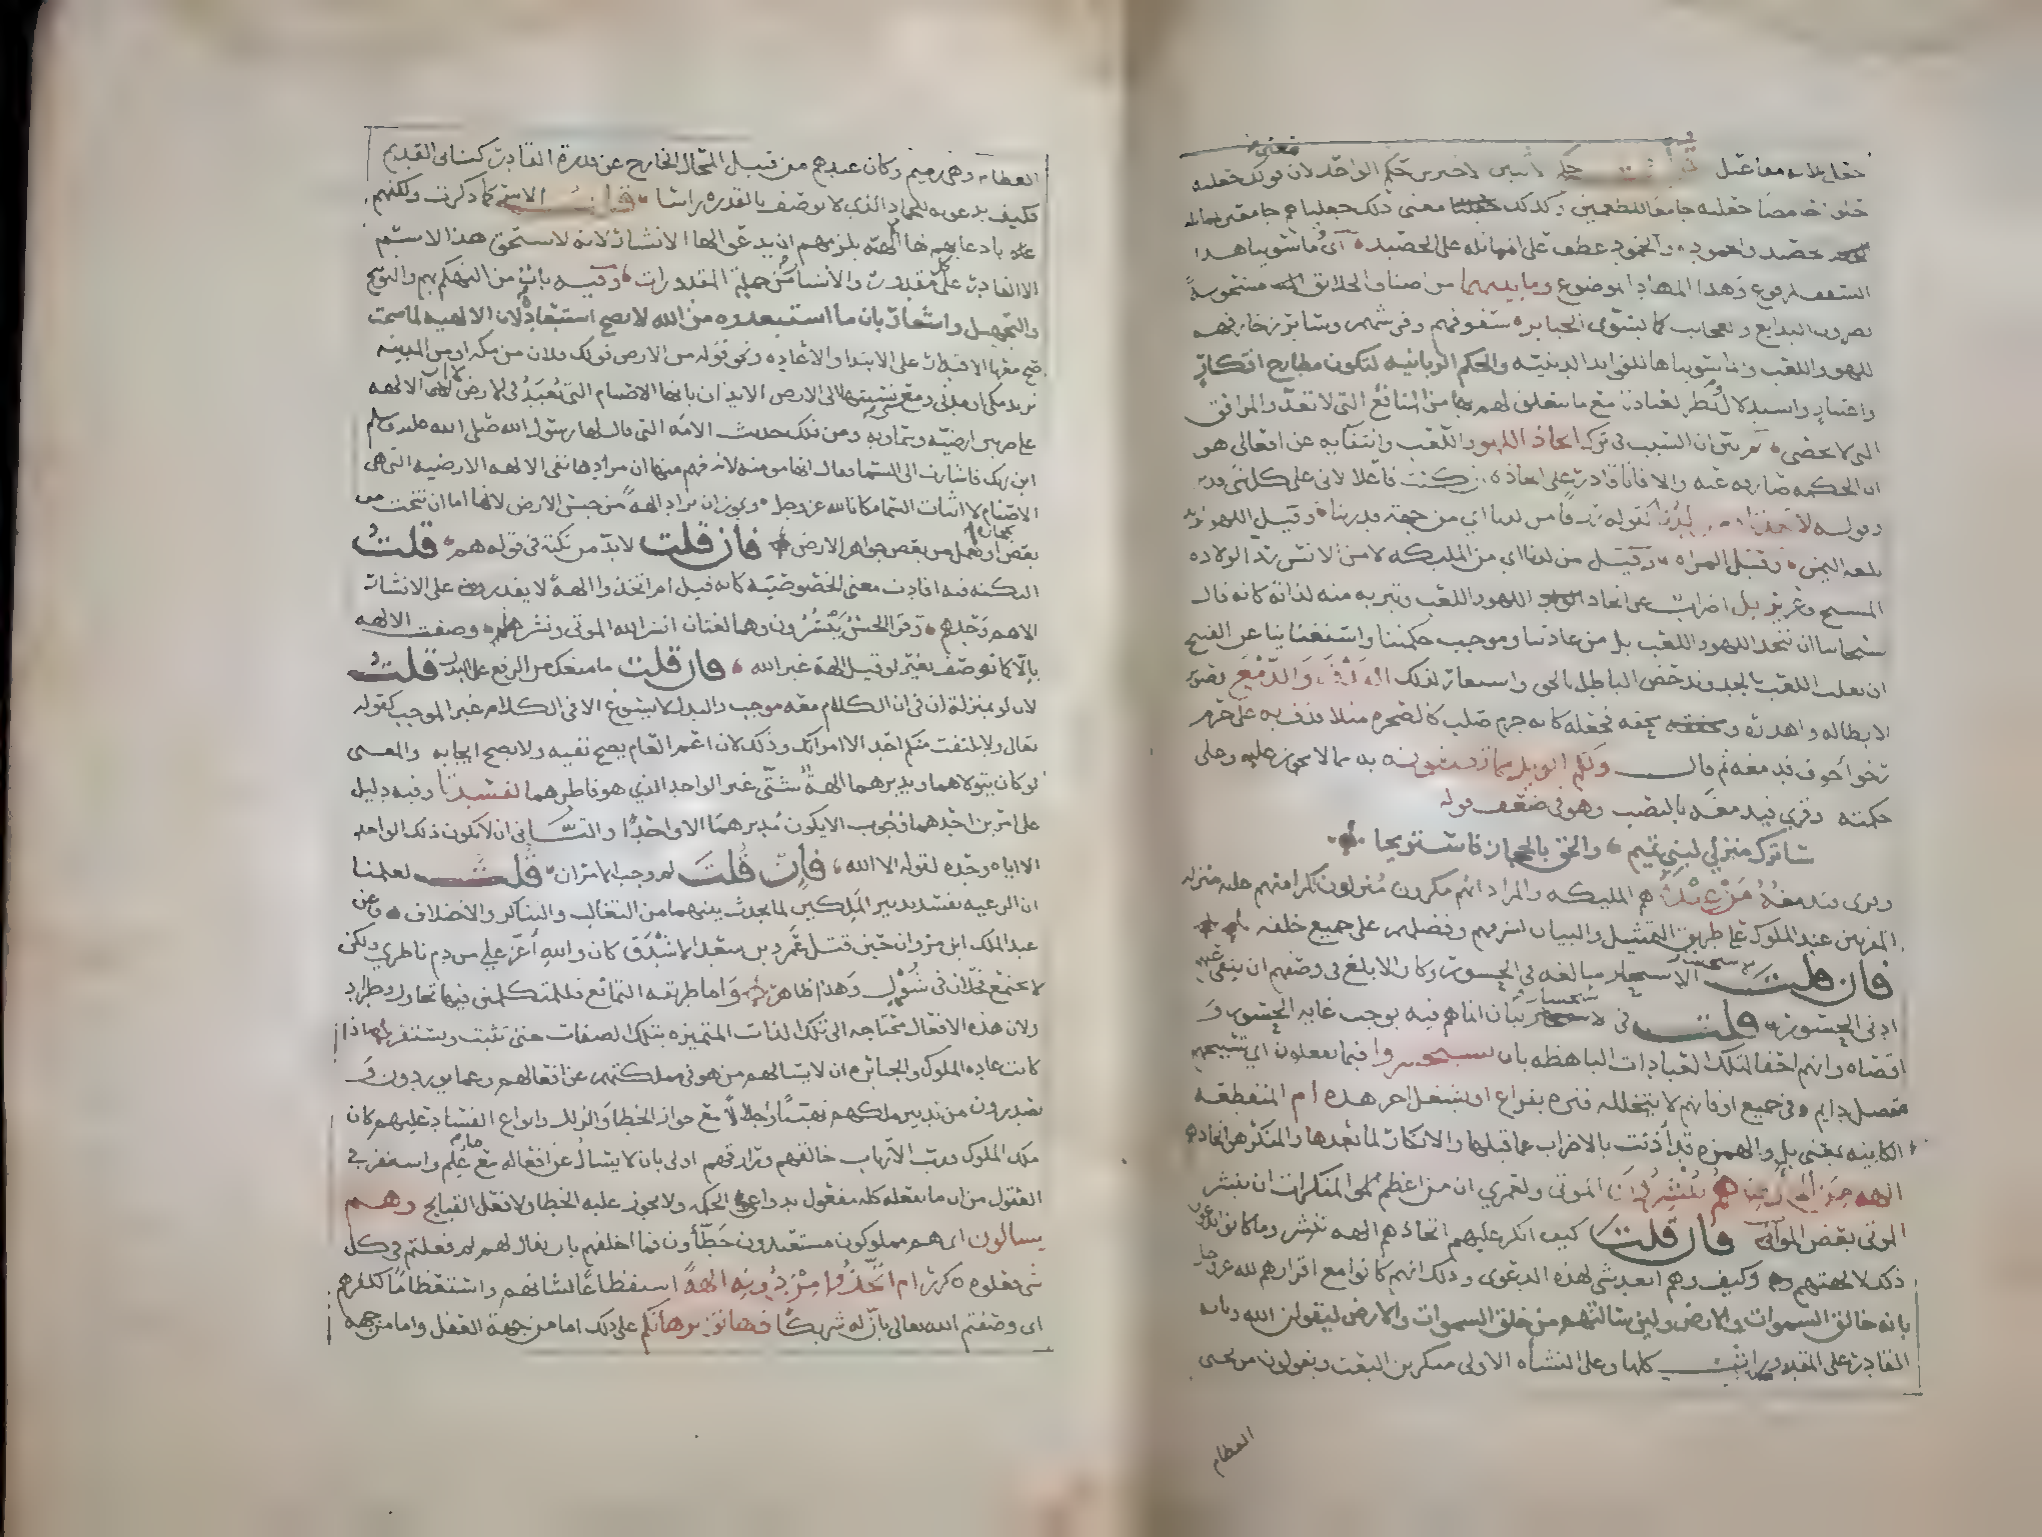 معنى
حكم الاثنين الاخيرين حكم الواحد لان قولك جعلته
حلوا حامضا جعلته جامعا للطعمين وكذلك معنى ذلك جعلناهم جامعين لمماثلة
حصيد والخمود والخمود عطف على المماثلة لا على الحصيد اى وما سوينا هذا
السقف المرفوع وهذا المهاد الموضوع وما بينهما من اصناف الخلائق مشحونة
بضروب البدايع والعجايب كما يسوى الجبابرة سقوفهم وفرشهم وسائر زخارفهم
للهو واللعب وانما سويناها للفوايد الدينية والحكم الربانية لتكون مطارح افتكار
واعتبار واستدلال ونظر لعبادنا مع ما يتعلق لهم بها من المنافع التى لا تعد والمرافق
التى لا تحصى ثم بين ان السبب فى ترك اتخاذ اللهو واللعب وانتفائه عن افعالى هو
ان الحكمة صارفة عنه والا فانا قادر على اتخاذه ان كنت فاعلا لانى على كل شى قدير
وقوله لاتخذناه من لدنا كقوله رزقا من لدنا اى من جهة قدرتنا وقيل اللهو الولد
بلغة اليمن وقيل المراة وقيل من لدنا اى من المليكة لا من الانس رد الولادة
المسيح وعزير بل اضراب عن اتخاذ اللهو واللعب وتنزيه منه لذاته كانه قال
سبحاننا ان نتخذ اللهو واللعب بل من عادتنا وموجب حكمتنا واستغنائنا عن القبيح
ان نغلب اللعب بالجد وندحض الباطل بالحق واستعار لذلك القذف والدمغ تصويرا
لابطاله واهداره ومحقه فجعله كانه جرم صلب كالصخرة مثلا قذف به على جرم
رخو اجوف فدمغه ثم قال ولكم الويل مما تصفونه به مما لا يجوز عليه وعلى
حكمته وقرى فيدمغه بالنصب وهو فى ضعف قوله
ساترك منزلى لبنى تميم والحق بالحجاز فاستريحا
وقرى فيدمغه ومن عنده هم المليكة والمراد انهم مكرمون منزلون لكرامتهم عليه منزلة
المقربين عند الملوك على طريق التمثيل والبيان لشرفهم وفضلهم على جميع خلقه
فان قلت الاستحسار مبالغة فى الحسور وكان الابلغ فى وصفهم ان ينفى عنهم
ادنى الحسور قلت فى الاستحسار بيان ان ما هم فيه يوجب غاية الحسور و
اقصاه وانهم احقا لتلك العبادات الباهظة بان يستحسروا فيما يفعلون اى تسبيحهم
متصل دايم فى جميع اوقاتهم لا يتخلله فترة بفراغ او بشغل اخر هذه ام المنقطعة
الكاينة بمعنى بل والهمزة قد اذنت بالاضراب عما قبلها والانكار لما بعدها والمنكر هو اتخاذهم
الهة من الارض هم ينشرون الموتى ولعمرى ان من اعظم المنكرات ان ينشر
الموتى بعض الموات فان قلت كيف انكر عليهم اتخاذهم الهة تنشر وما كانوا يدعون
ذلك لالهتهم وكيف وهم ابعد شى لهذه الدعوى وذلك انهم كانوا مع اقرارهم لله عز وجل
بانه خالق السموات والارض ولئن سالتهم من خلق السموات والارض ليقولن الله وبانه
القادر على المقدورات كلها وعلى النشاة الاولى منكرين البعث ويقولون من يحيى
العظام
العظام وهى رميم وكان عندهم من قبيل المحال الخارج عن قدرة القادر كثانى القديم
فكيف يدعونه للجماد الذى لا يوصف بالقدرة راسا قلت الامر كما ذكرت ولكنهم
بادعائهم لها الالهية يلزمهم ان يدعوا لها الانشار لانه لا يستحق هذا الاسم
الا القادر على كل مقدور والانشار من جملة المقدورات وفيه باب من التهكم بهم والتوبيخ
والتجهيل واشعار بان ما استبعدوه من الله لا يصح استبعاده لان الالهية لما صحت
صح معها الاقتدار على الابدا والاعادة ونحو قوله من الارض قولك فلان من مكة او من المدينة
تريد مكى او مدنى ومعنى نسبتها الى الارض الايذان بانها الاصنام التى تعبد فى الارض لان الالهة
على ضربين ارضية وسماوية ومن ذلك حديث الامة التى قال لها رسول الله صلى الله عليه وسلم
اين ربك فاشارت الى السما فقال انها مومنة لانه فهم منها ان مرادها نفى الالهة الارضية التى هى
الاصنام لا اثبات السما مكانا لله عز وجل ويجوز ان يراد الهة من جنس الارض لانها اما ان تنحت من
بعض الحجارة او تعمل من بعض جواهر الارض فان قلت لابد من نكتة فى قوله هم قلت
النكتة فيه افادة معنى الخصوصية كانه قيل ام اتخذوا الهة لا يقدر على الانشار
الا هم وحدهم وقرا الحسن ينشرون وهما لغتان انشر الله الموتى ونشرها وصفت الالهة
بالا كما توصف بغير لو قيل الهة غير الله فان قلت ما منعك من الرفع على البدل قلت
لان لو بمنزلة ان فى ان الكلام معه موجب والبدل لا يسوغ الا فى الكلام غير الموجب كقوله
تعالى ولا يلتفت منكم احد الا امراتك وذلك لان اعم العام يصح نفيه ولا يصح ايجابه والمعنى
لو كان يتولاهما ويدبرهما الهة شتى غير الواحد الذى هو فاطرهما لفسدتا وفيه دليل
على امرين احدهما وجوب الا يكون مدبرهما الا واحدا والثانى ان لا يكون ذلك الواحد
الا اياه وحده لقوله الا الله فان قلت لم وجب الامران قلت لعلمنا
ان الرعية تفسد بتدبير الملكين لما يحدث بينهما من التغالب والتناكر والاختلاف وعن
عبد الملك ابن مروان حين قتل عمرو بن سعيد الاشدق كان والله اعز على من دم ناظرى ولكن
لا يجتمع فحلان فى شول وهذا ظاهر واما طريقة التمانع فللمتكلمين فيها تجاول وطراد
ولان هذه الافعال محتاجة الى تلك الذات المتميزة بتلك الصفات حتى تثبت وتستقر اذا
كانت عادة الملوك والجبابرة ان لا يسالهم من هو فى مملكتهم عن افعالهم وعما يوردون و
يصدرون من تدبير ملكهم تهيبا واجلالا مع جواز الخطا والزلل وانواع الفساد عليهم كان
ملك الملوك ورب الارباب خالقهم ورازقهم اولى بان لا يسال عن افعاله مع ما علم واستقر فى
العقول من ان ما يفعله كله مفعول بدواعى الحكمة ولا يجوز عليه الخطا ولا فعل القبايح وهم
يسالون اى هم مملوكون مستعبدون خطاون فما اخلقهم بان يقال لهم لم فعلتم فى كل
شى فعلوه كرر ام اتخذوا من دونه الهة استفظاعا لشانهم واستعظاما لكفرهم
اى وصفتم الله تعالى بان له شريكا فهاتوا برهانكم على ذلك اما من جهة العقل واما من جهة